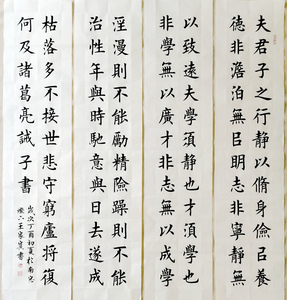 夫君子之行靜以脩身儉㠯養
德非澹泊無㠯明志非寧靜無
以致遠夫學須靜也才須學也
非學無以廣才非志無以成學
淫漫則不能勵精險躁則不能
治性年與時馳意與日去遂成
枯落多不接世悲守窮廬將復
何及諸葛亮誡子書
歲次丁酉初夏於南
王家書